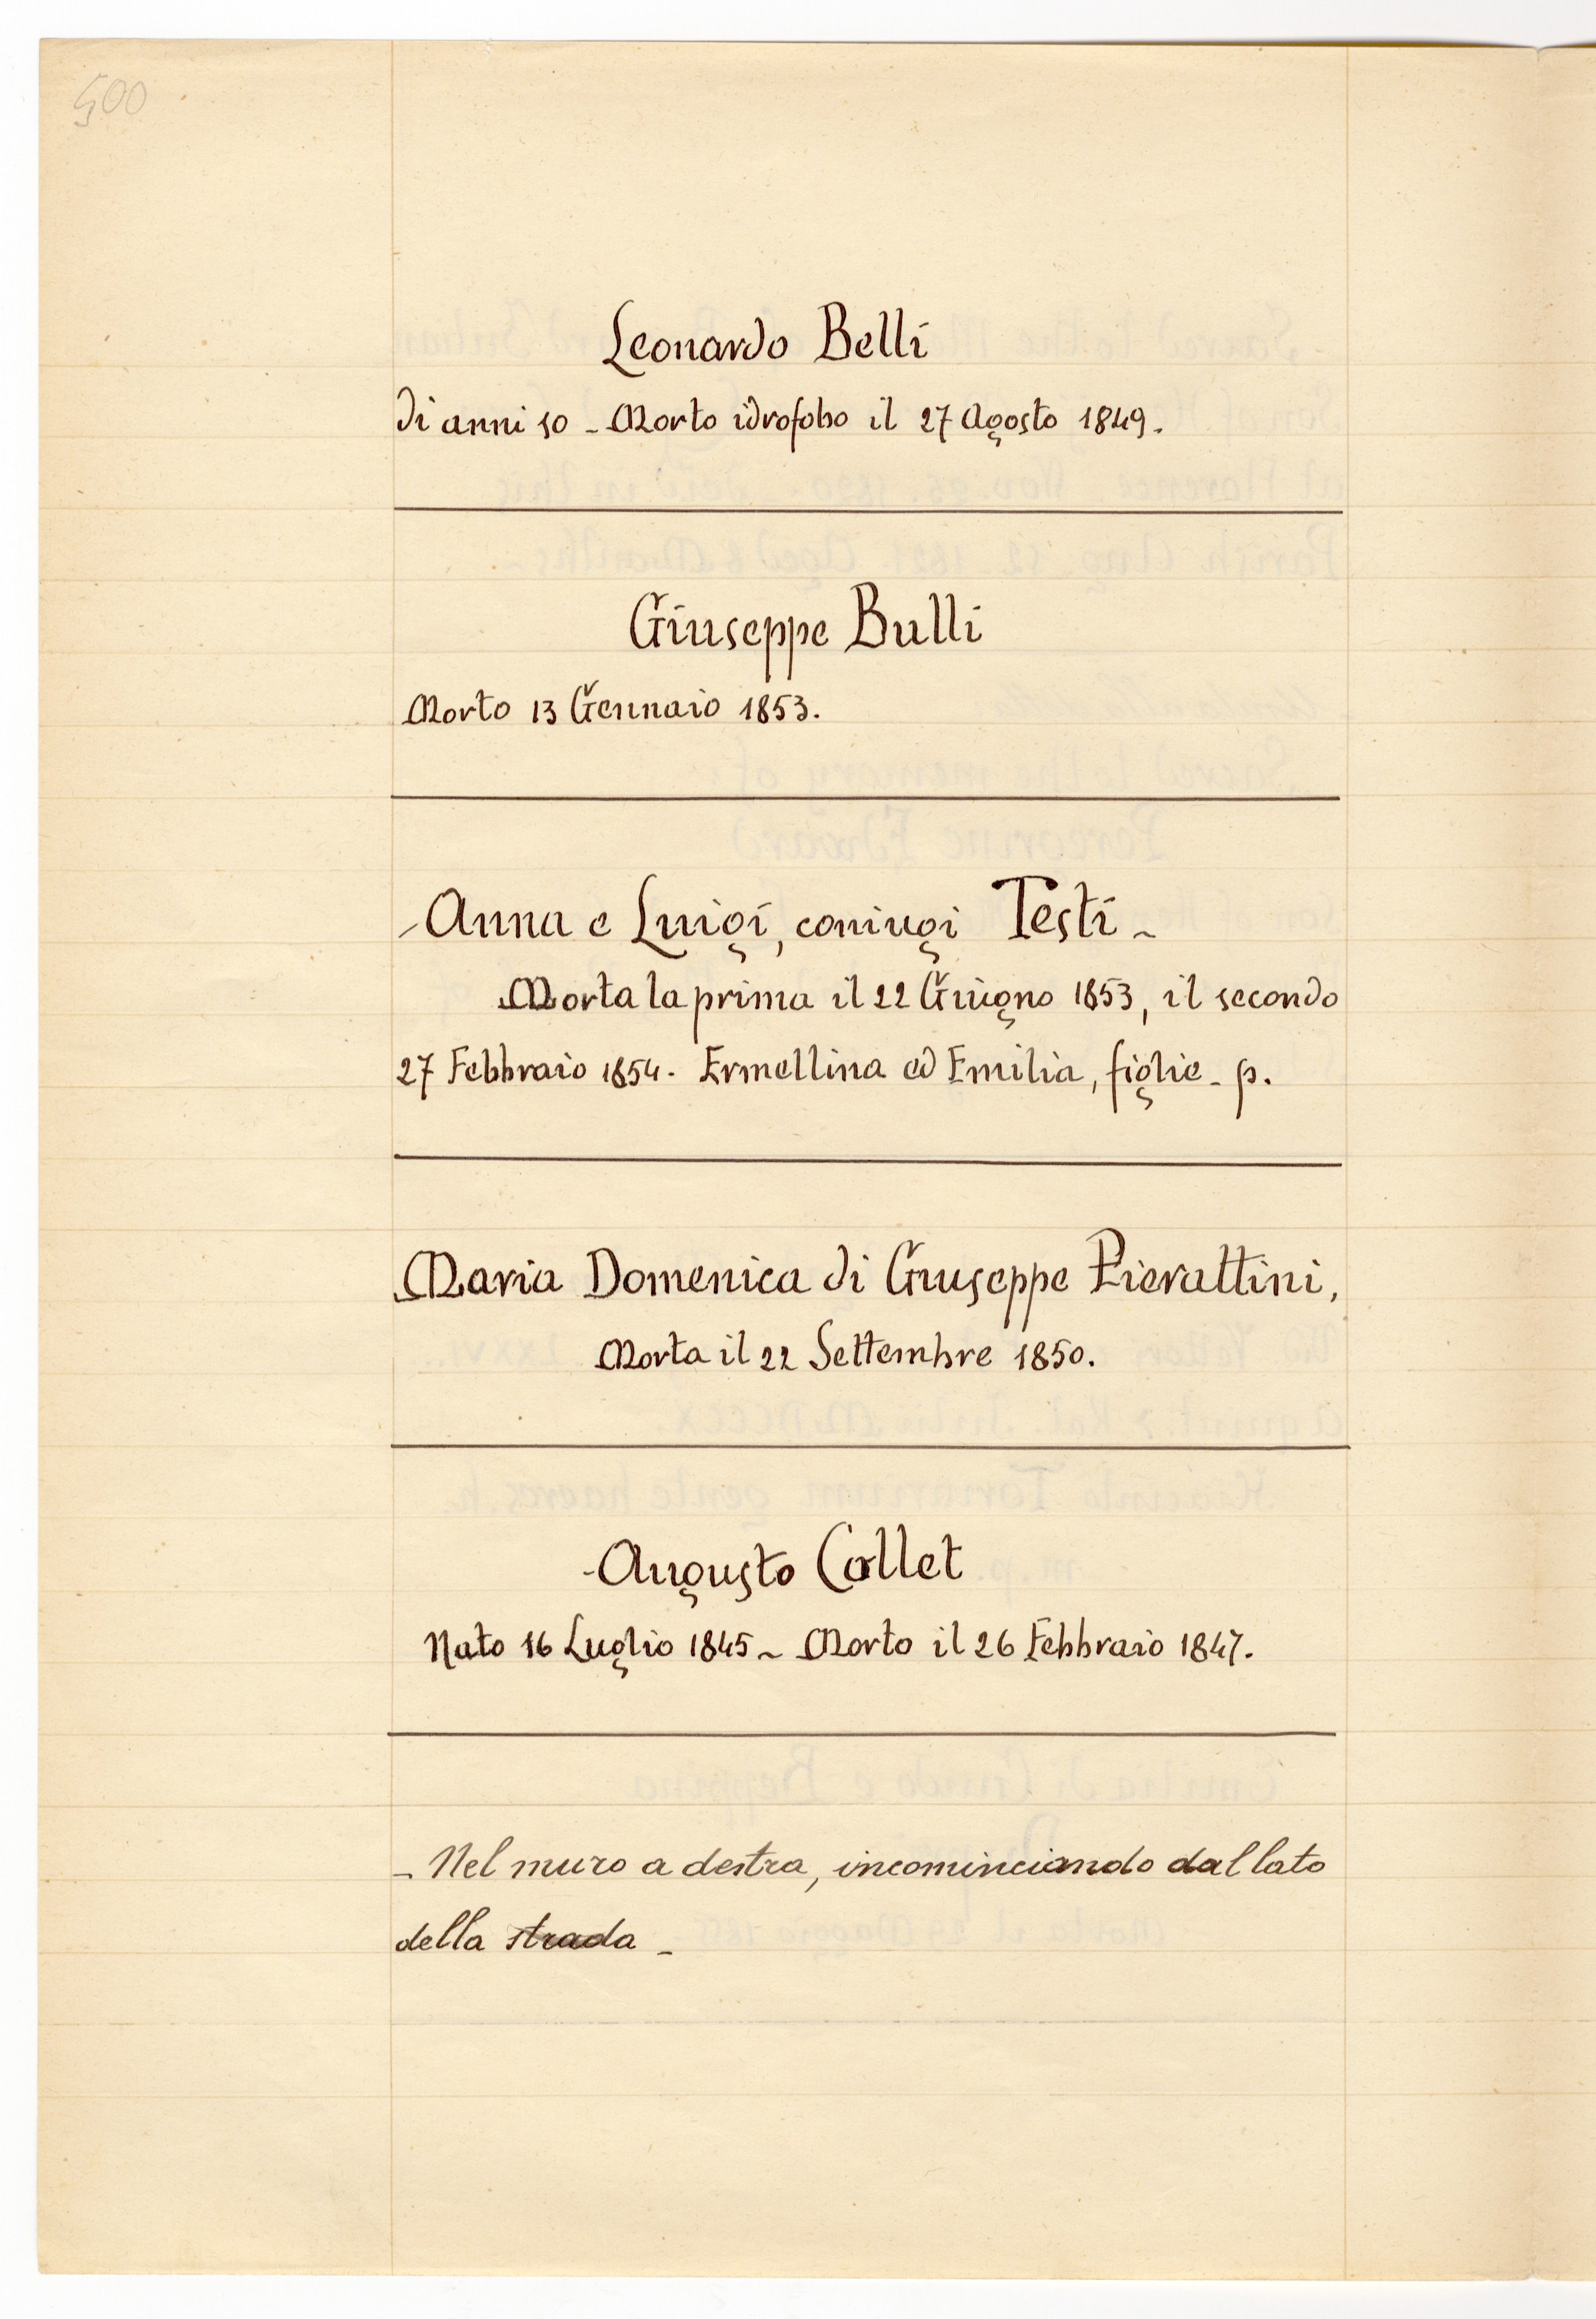 500
Leonardo Belli
di anni 10 - Morto idrofobo il 27 Agosto 1849.
Giuseppe Bulli
Morto 13 Gennaio 1853.
Anna e Luigi, coniugi Testi -
Morta la prima il 22 Giugno 1853, il secondo
27 Febbraio 1854. Ermellina ed Emilia, figlie - p.
Maria Domenica di Giuseppe Pierattini,
Morta il 22 Settembre 1850.
Augusto Collet
Nato 16 Luglio 1845 - Morto il 26 Febbraio 1847.
- Nel muro a destra, incominciando dal lato
della strada -